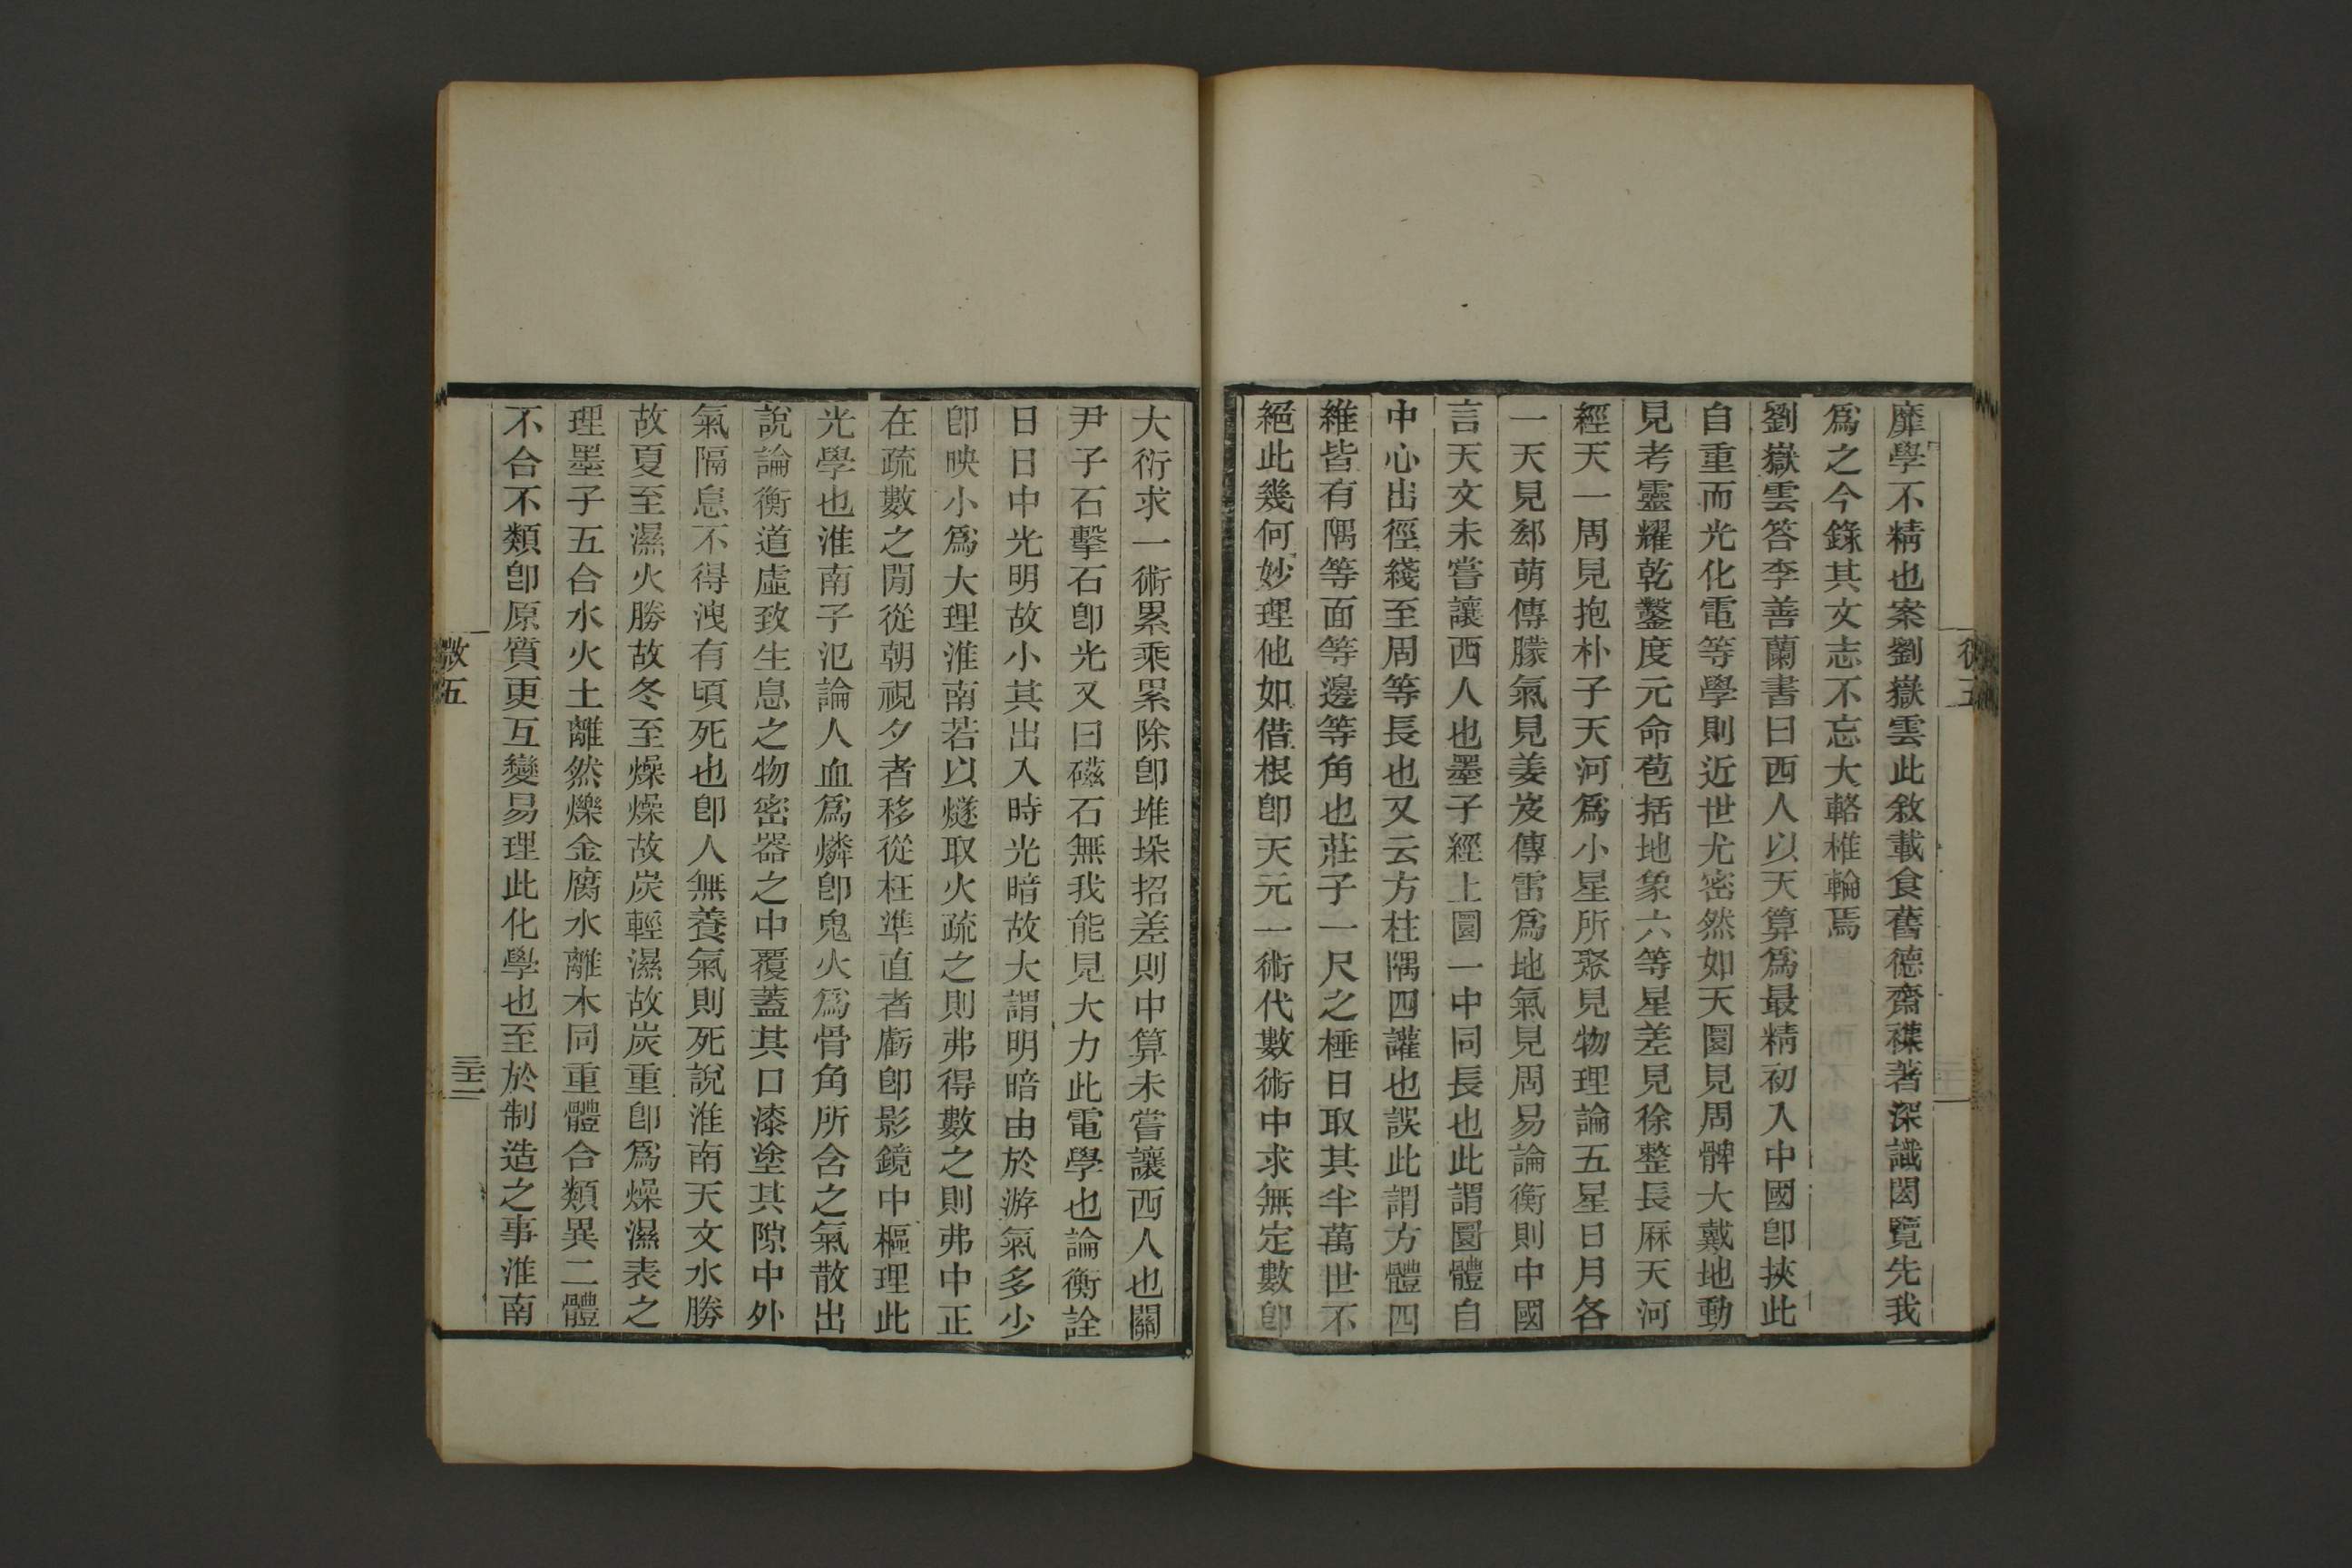 靡學不精也案劉嶽雲此敘載食舊德齋襍著深識閎覽先我
爲之今錄其文志不忘大輅椎輪焉
劉嶽雲答李善蘭書曰西人以天算爲最精初入中國卽挾此
自重而光化電等學則近世尤密然如天圜見周髀大戴地動
見考靈耀乾鑿度元命苞括地象六等星差見徐整長厤天河
經天一周見抱朴子天河爲小星所聚見物理論五星日月各
一天見郄萌傳朦氣見姜岌傳雷爲地氣見周易論衡則中國
言天文未嘗讓西人也墨子經上圜一中同長也此謂圜體自
中心出徑綫至周等長也又云方柱隅四讙也誤此謂方體四
維皆有隅等面等邊等角也莊子一尺之棰日取其半萬世不
絕此幾何妙理他如借根卽天元一術代數術中求無定數卽
大衍求一術累乘累除卽堆垛招差則中算未嘗讓西人也關
尹子石擊石卽光又曰磁石無我能見大力此電學也論衡詮
日日中光明故小其出入時光暗故大謂明暗由於游氣多少
卽映小爲大理淮南若以燧取火疏之則弗得數之則弗中正
在疏數之閒從朝視夕者移從枉準直者虧卽影鏡中樞理此
光學也淮南子氾論人血爲燐卽鬼火爲骨角所含之氣散出
說論衡道虛致生息之物密器之中覆蓋其口漆塗其隙中外
氣隔息不得洩有頃死也卽人無養氣則死說淮南天文水勝
故夏至濕火勝故冬至燥燥故炭輕濕故炭重卽爲燥濕表之
理墨子五合水火土離然爍金腐水離木同重體合類異二體
不合不類卽原質更互變易理此化學也至於制造之事淮南
五